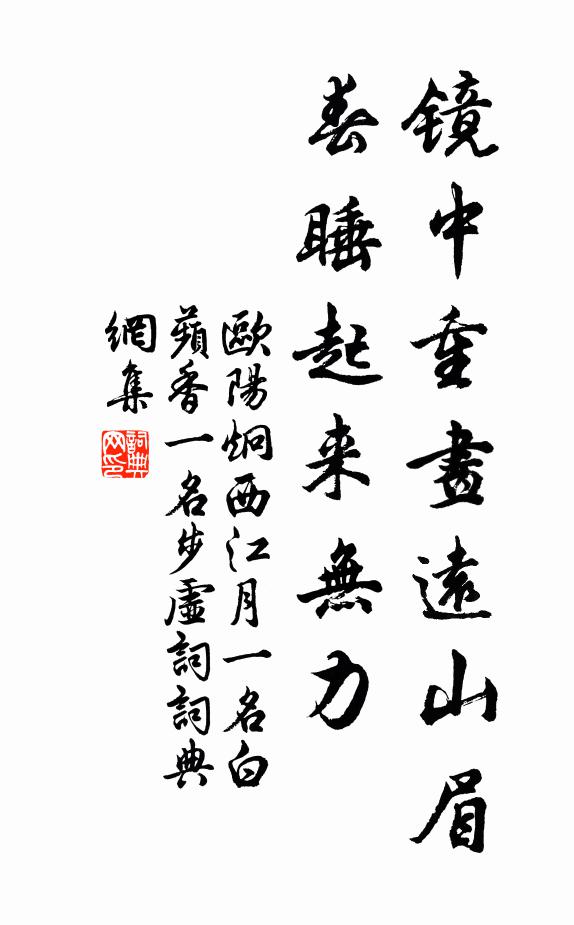 镜中重畫遠山眉
春睡起来無力
歐陽炯西江月一名白
蘋香一名步虛詞詞典
網集
詞典
网印